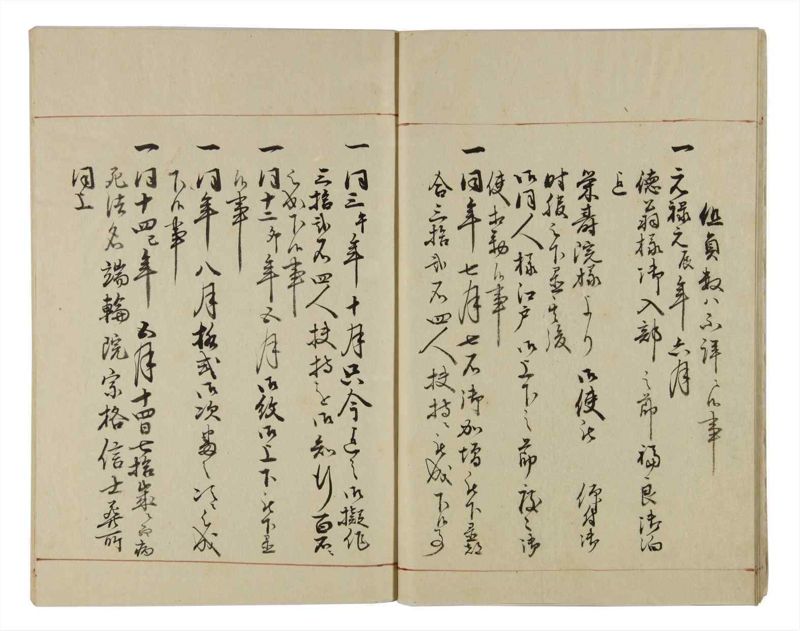 但員数ハ不詳候事
一元禄元辰年六月
徳翁様御入部之節福良御泊
ニ
栄寿院様より御使被 仰付御
時服被下置其後
御同人様江戸御上下之節度々御
使相勤候事
一同年七月七石御加増被下置都
合三拾弐石四人扶持被成下候事
一同三午年十月只今迄之御擬作
三拾弐石四人扶持を御知行百石
被成下候事
一同十二卯年五月御紋御上下被下置
候事
一同年八月格式御次被成
下候事
一同十四巳年五月十四日七拾歳ニ而病
死法名端輪院宗格信士葬所
同上